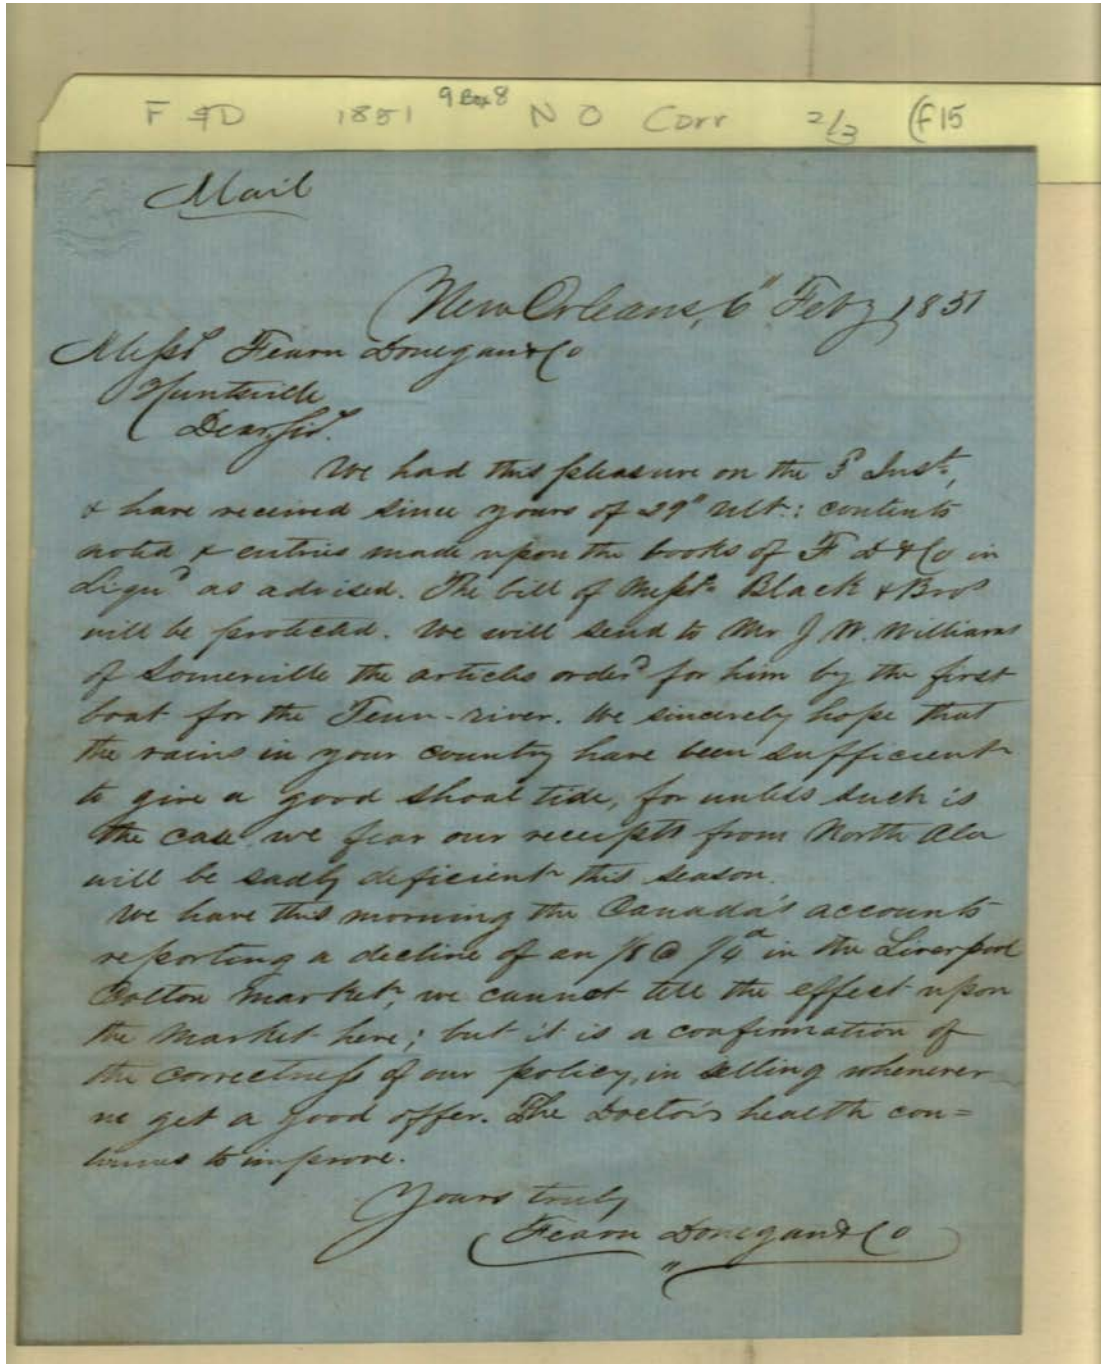 F & D 1851 9 Box 8 N O Corr 2/3 (F15
Mail
New Orleans, 6" Feby 1851
Messrs Fearn Donegan & Co
Huntsville
Dear Sirs.
We had this pleasure on the 3d Inst,
& have received since yours of 29" ult: contents
noted & entries made upon the books of F D & Co in
Liqn as advised. The bill of Messrs Black & Bros
will be protected. We will send to Mr J W. Williams
of Somerville the articles order'd for him by the first
boat for the Tenn-river. We sincerely hope that
the rains in your country have been sufficient
to give a good shoal tide, for unless such is
the case we fear our receipts from North Ala
will be sadly deficient this season.
We have this morning the Canada's accounts
reporting a decline of an 1/8 @ 1/4d in the Liverpool
Cotton market, we cannot tell the effect upon
the market here; but it is a confirmation of
the correctness of our policy, in selling whenever
we get a good offer. The Doctor's health con=
tinues to improve.
Yours truly
Fearn Donegan & Co